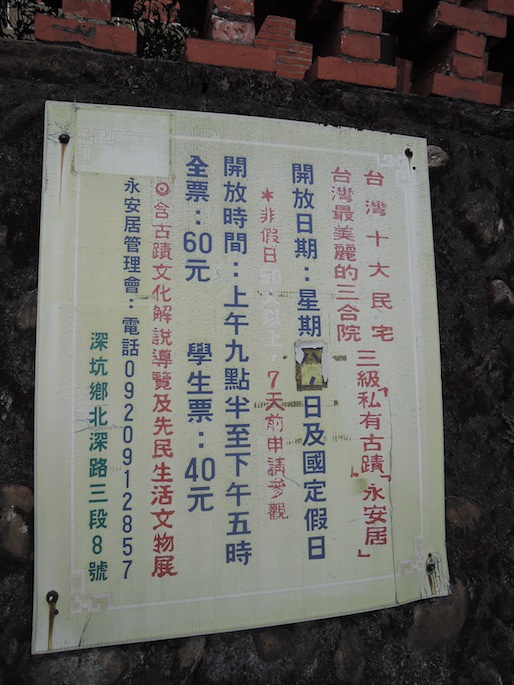 台灣十大民宅
台灣最美麗的三合院 三級私有古蹟「永安居」
開放日期：星期，日及國定假日
*非假日50人以上，7天前申請參觀
開放時間：上午九點半至下午五時
全票：60元 學生票：40元
⊙含古蹟文化解說導覽及先民生活文物展
永安居管理會：電話0920912857
深坑鄉北深路三段8號